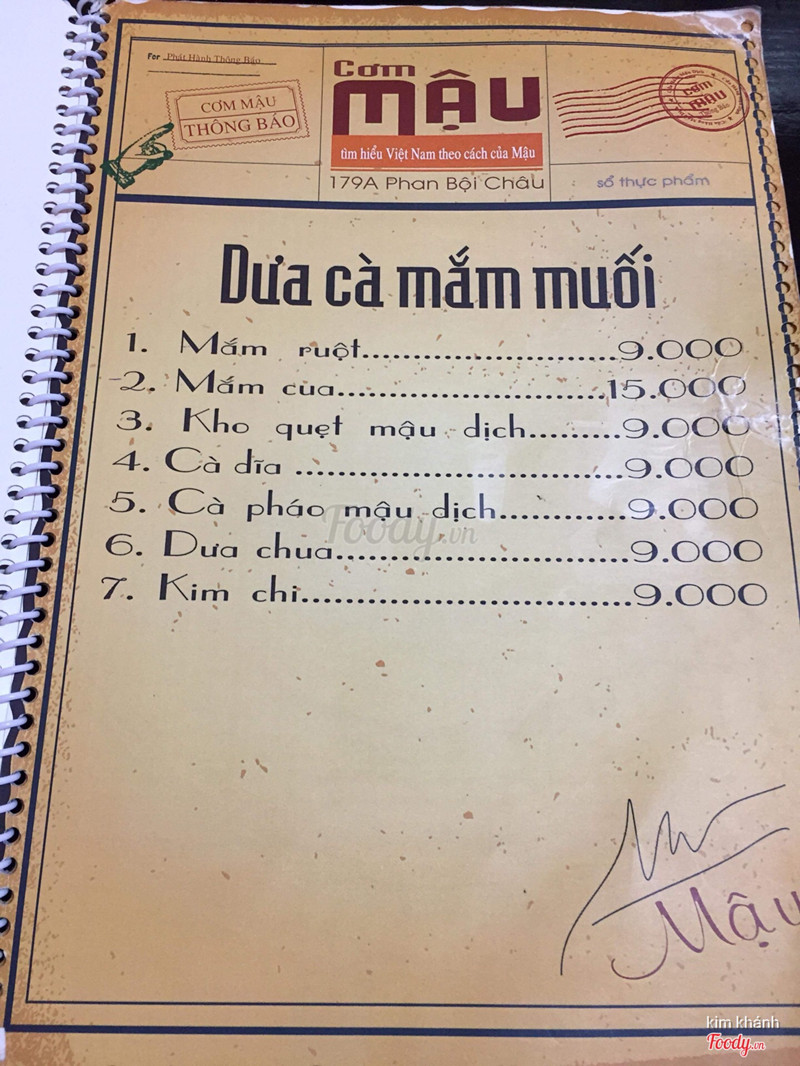 For Phát Hành Thông Báo
CƠM MẬU
THÔNG BÁO
Cơm
MẬU
tìm hiểu Việt Nam theo cách của Mậu
179A Phan Bội Châu
CƠM
MẬU
sổ thực phẩm
Dưa cà mắm muối
1. Mắm ruột.....................................9.000
2. Mắm cua.....................................15.000
3. Kho quẹt mậu dịch.........9.000
4. Cà dĩa .....................................9.000
5. Cà pháo mậu dịch.............9.000
6. Dưa chua.....................................9.000
7. Kim chi.....................................9.000
Foody.vn
Mậu
kim khánh
Foody.vn